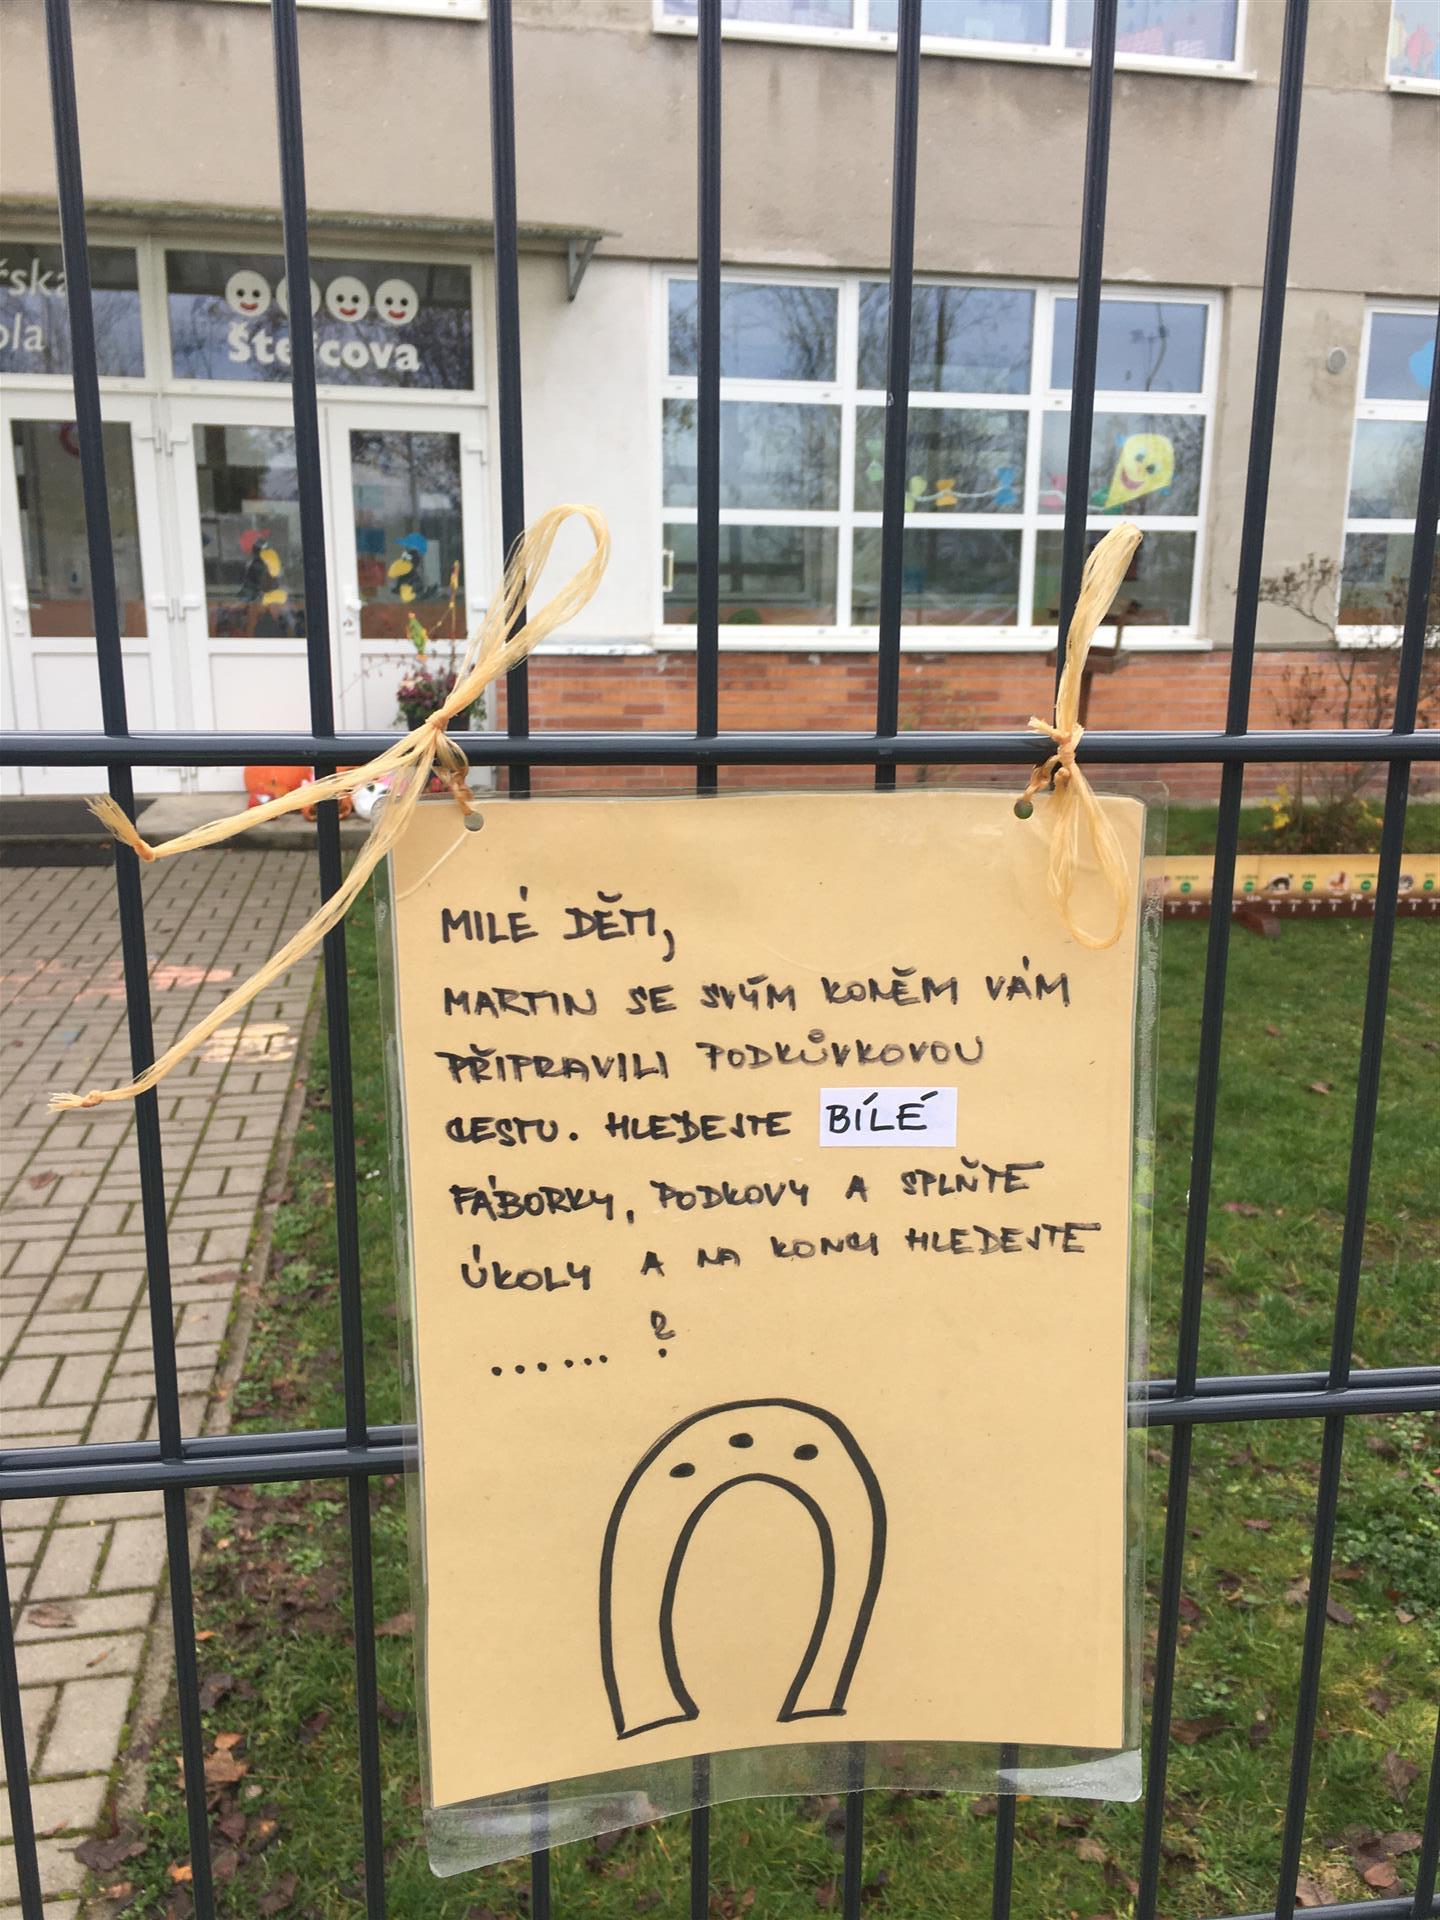 štercova
MILÉ DĚTI,
MARTIN SE SVÝM KONĚM VÁM
PŘIPRAVILI PODKŮVKOVOU
CESTU. HLEDEJTE BÍLÉ
FÁBORKY, PODKOVY A SPLŇTE
ÚKOLY A NA KONCI HLEDEJTE
...... ?